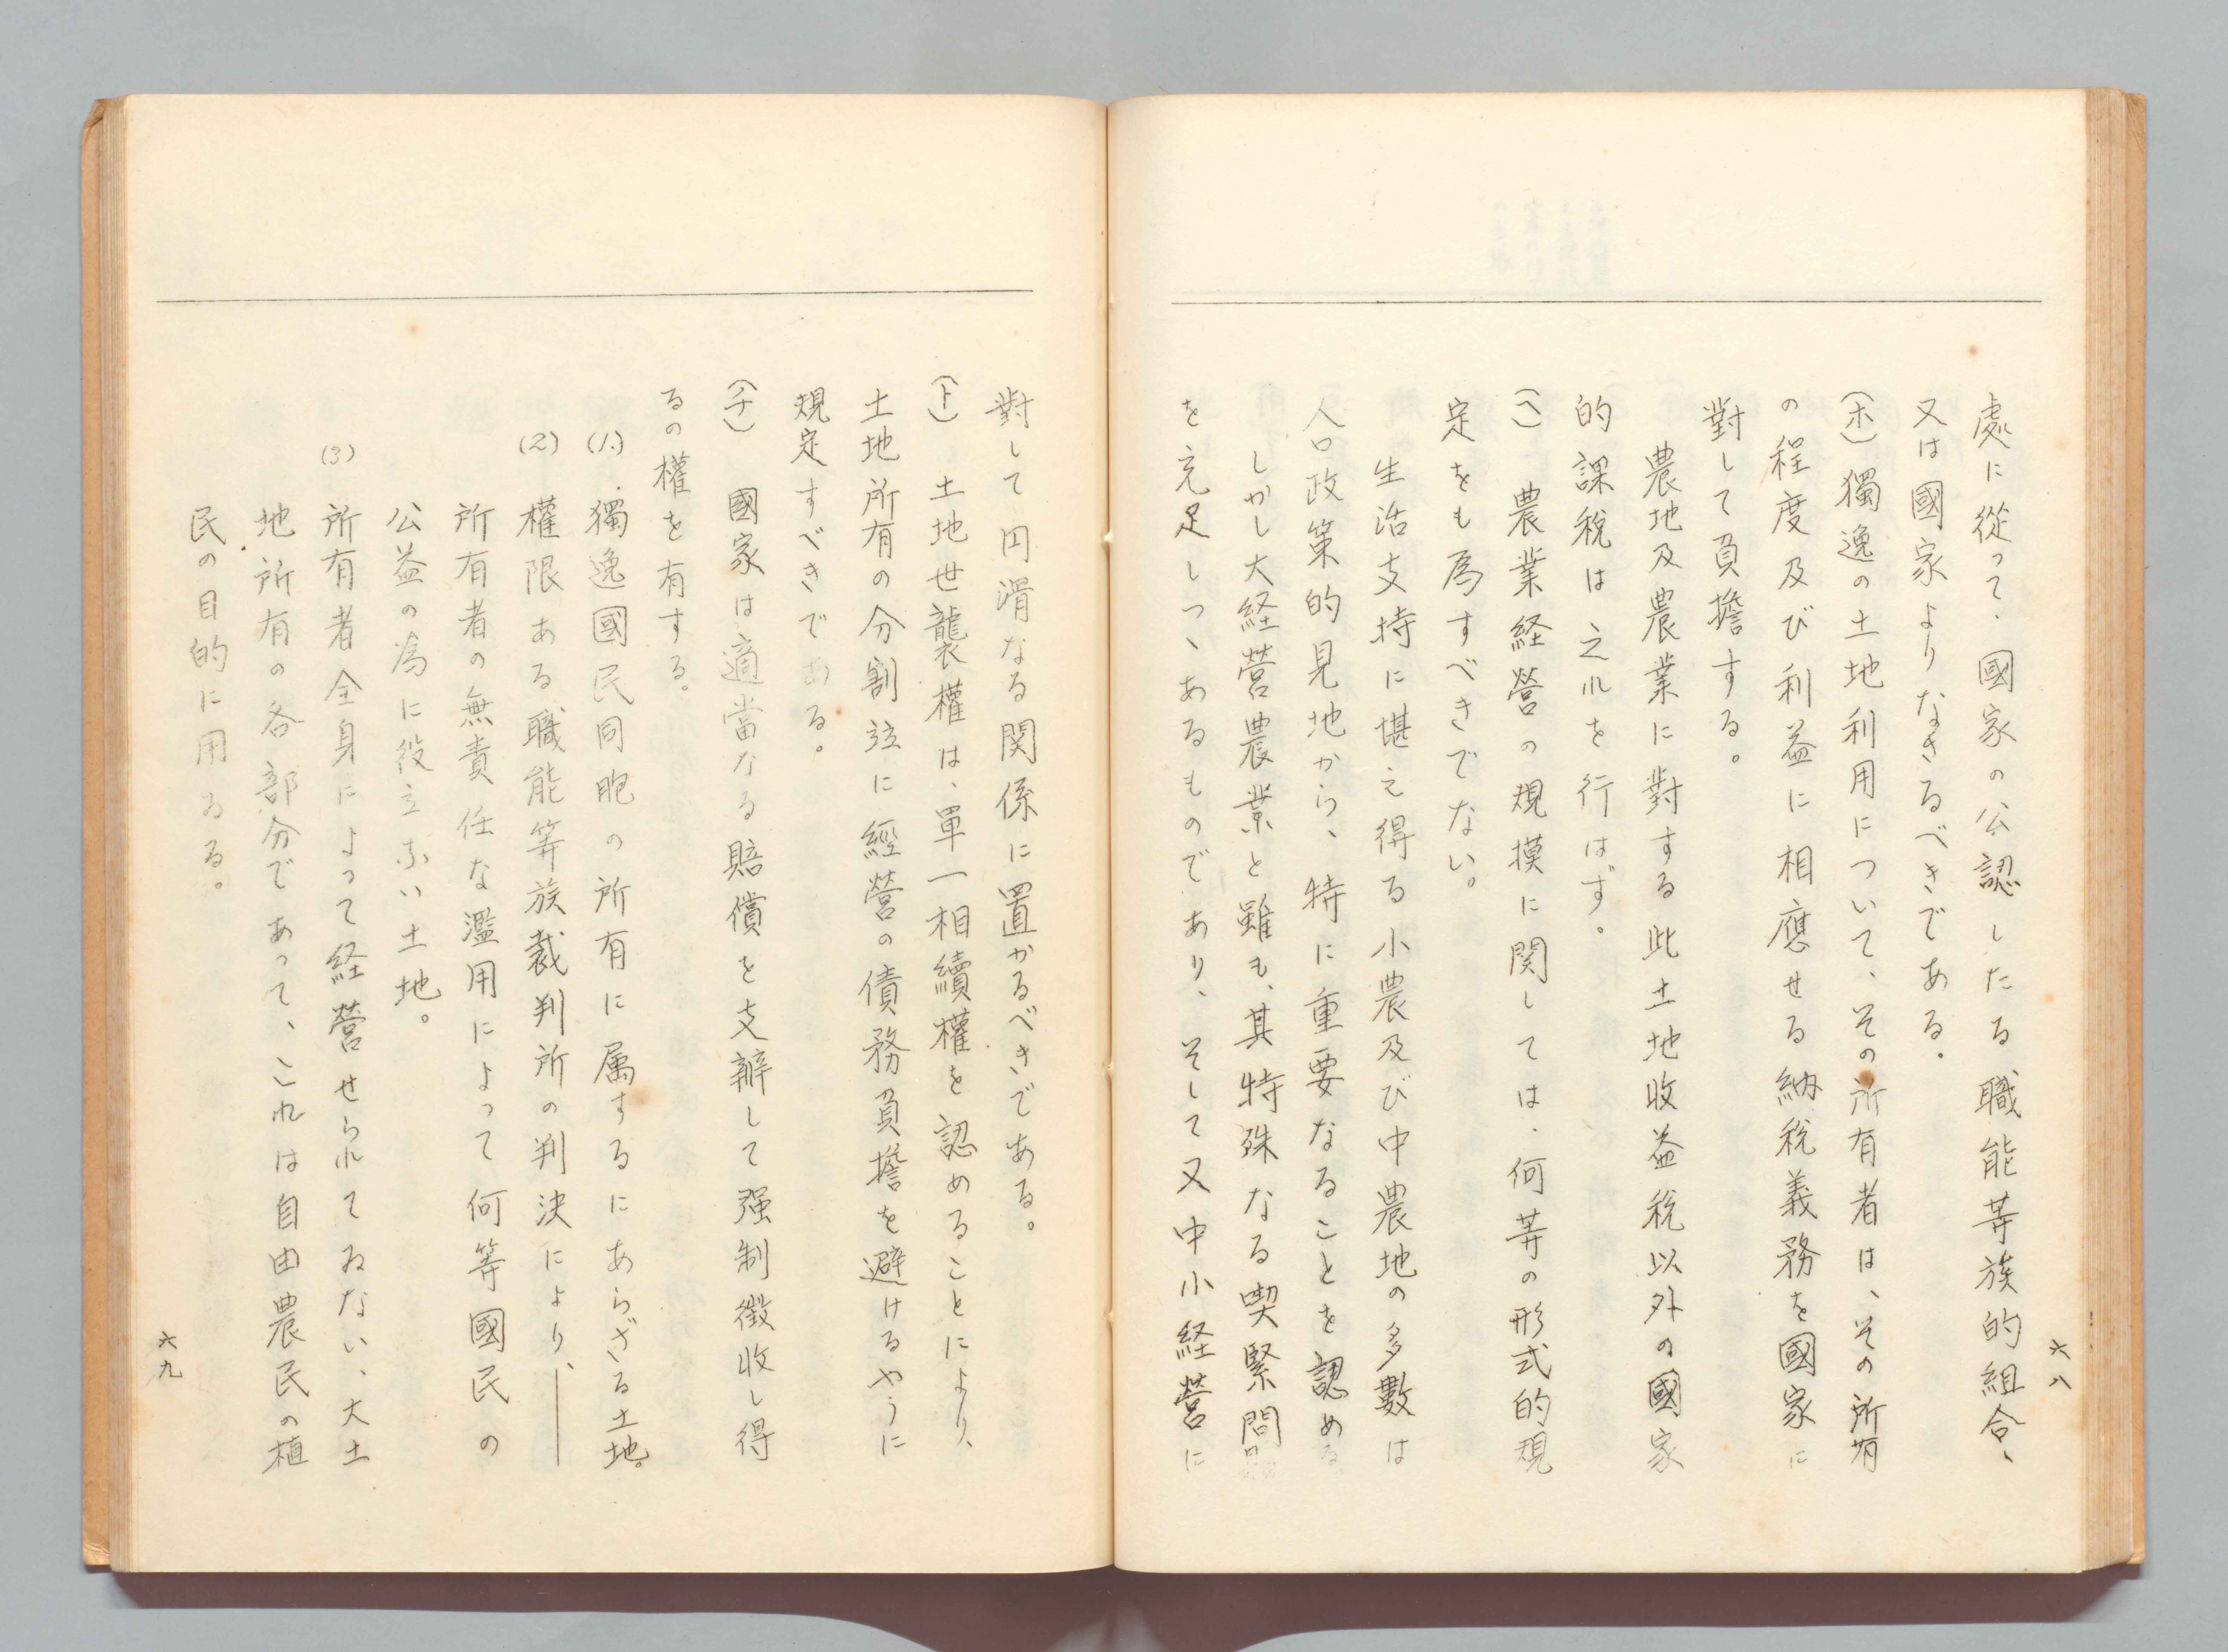 六八
處に從って、國家の公認したる職能等族的組合、
又は國家よりなさるべきである。
(ホ) 獨逸の土地利用について、その所有者は、その所有
の程度及び利益に相應せる納税義務を國家に
對して負擔する。
農地及農業に對する此土地收益税以外の國家
的課税は之れを行はず。
(ヘ) 農業経營の規摸に関しては、何等の形式的規
定をも爲すべきでない。
生活支持に堪え得る小農及び中農地の多數は
人口政策的見地から、特に重要なることを認める
しかし大経營農業と雖も、其特殊なる喫緊問題
を充足しつゝあるものであり、そして又中小経營に
對して円滑なる関係に置かるべきである。
(ト) 土地世襲權は、單一相續權を認めることにより、
土地所有の分割竝に經營の債務負擔を避けるやうに
規定すべきである。
(チ) 國家は適當なる賠償を支辦して强制徴收し得
るの權を有する。
(1) 獨逸國民同胞の所有に属するにあらざる土地。
(2) 權限ある職能等族裁判所の判決により、——
所有者の無責任な濫用によって何等國民の
公益の爲に役立ない土地。
(3) 所有者全身によって経營せられてゐない、大土
地所有の各部分であって、これは自由農民の植
民の目的に用ゐる。
六九